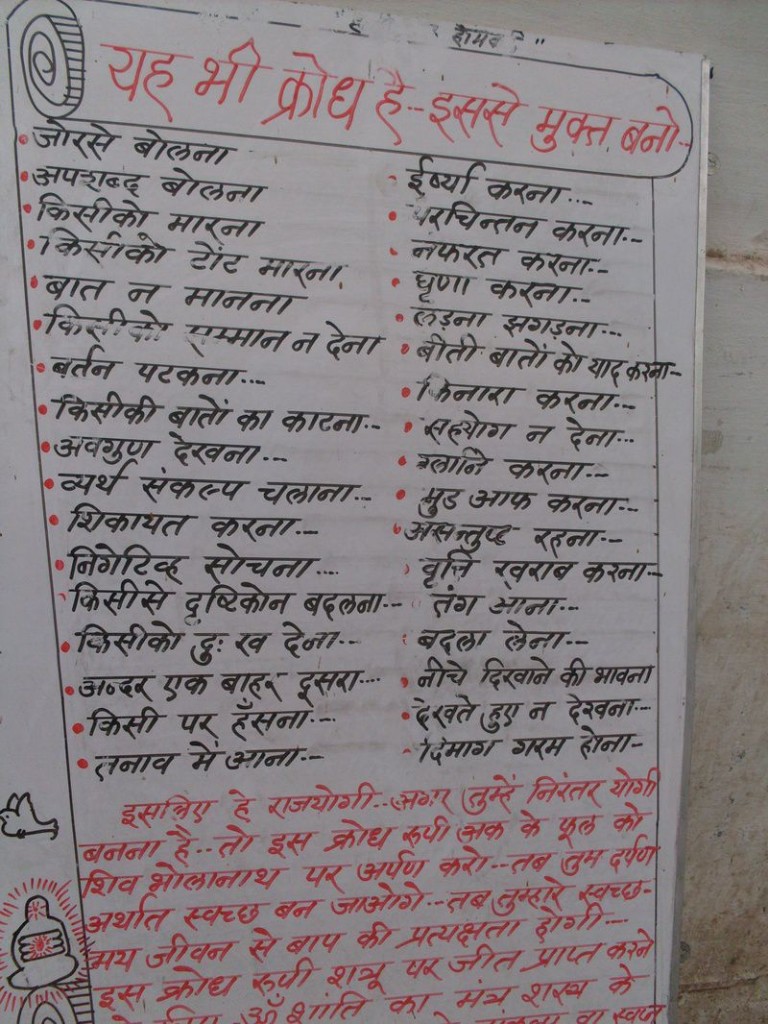 यह भी क्रोध है--इससे मुक्त बनो-
• जोरसे बोलना
• अपशब्द बोलना
• किसीको मारना
• किसीको टोंट मारना
• बात न मानना
• किसीको सम्मान न देना
• बर्तन पटकना...
• किसीकी बातों का काटना--
• अवगुण देखना--
• व्यर्थ संकल्प चलाना--
• शिकायत करना--
• निगेटिव्ह सोचना...
• किसीसे दृष्टिकोन बदलना--
• किसीको दुःख देना--
• अन्दर एक बाहर दूसरा--
• किसी पर हँसना--
• तनाव में आना--
- ईर्ष्या करना...
• परचिन्तन करना--
• नफरत करना--
• घृणा करना--
• लड़ना झगड़ना--
• बीती बातों को याद करना-
• किनारा करना--
• सहयोग न देना...
• ग्लानि करना--
• मुड आफ करना--
• असन्तुष्ट रहना--
• वृत्ति खराब करना-
तंग आना--
• बदला लेना--
• नीचे दिखाने की भावना
• देखते हुए न देखना--
• दिमाग गरम होना-
इसलिए हे राजयोगी..अगर तुम्हें निरंतर योगी
बनना है..तो इस क्रोध रूपी अक के फूल को
शिव भोलानाथ पर अर्पण करो--तब तुम दर्पण
अर्थात स्वच्छ बन जाओगे--तब तुम्हारे स्वच्छ-
मय जीवन से बाप की प्रत्यक्षता होगी--
इस क्रोध रूपी शत्रू पर जीत प्राप्त करने
ॐ शांति का मंत्र शस्त्र के